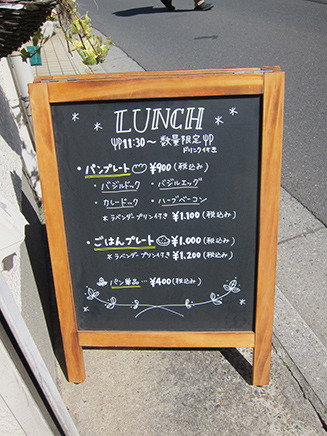 LUNCH
11:30〜 数量限定
ドリンク付き
・パンプレート ¥900(税込み)
・バジルドック ・バジルエッグ
・カレードック ・ハーブベーコン
*ラベンダープリン付き ¥1,100(税込み)
・ごはんプレート ¥1,000(税込み)
*ラベンダープリン付き ¥1,200(税込み)
パン単品…¥400(税込み)